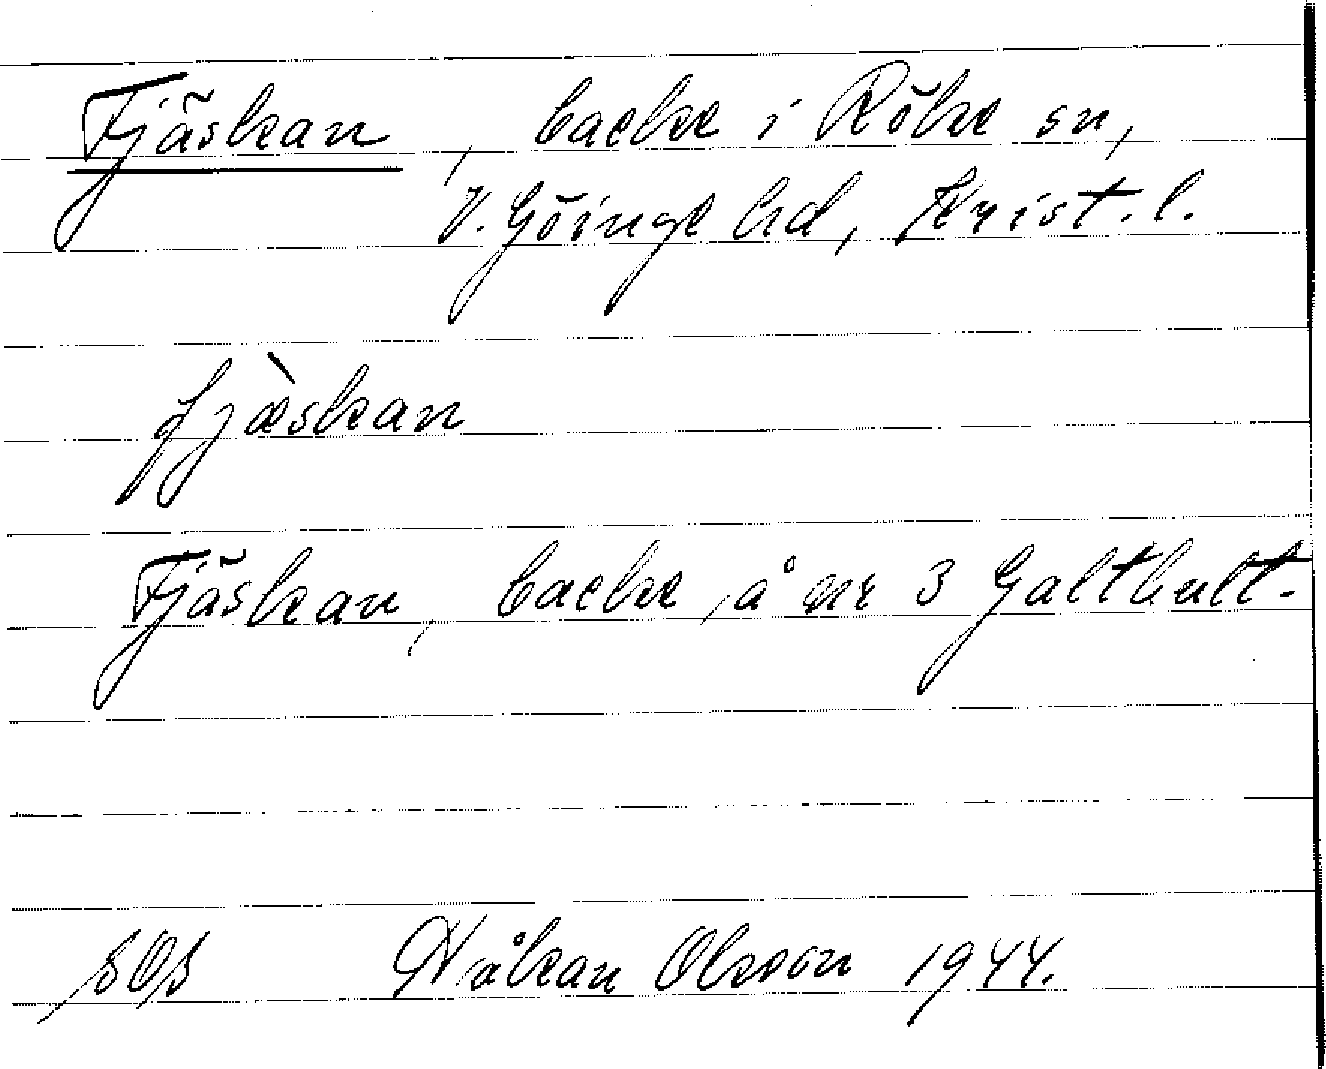 Fjäskan, backe i Röke sn,
V. Göinge hd, Krist. l.
fjæ̀skan
Fjäskan, backe, å nr 3 Galthult.
SOS Håkan Olsson 1944.